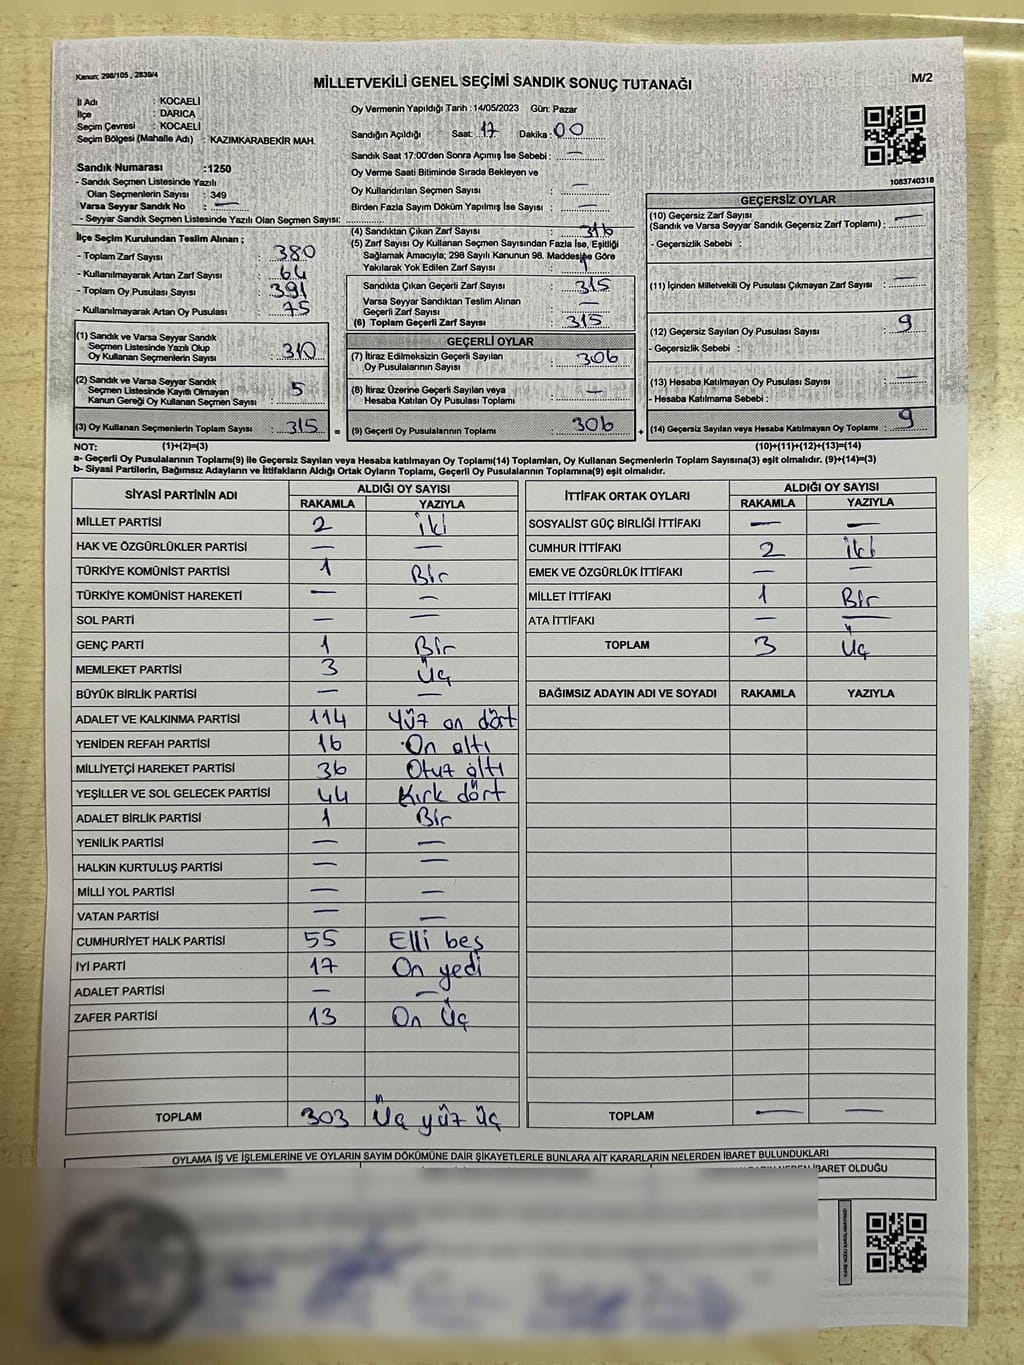 Kanun; 298/105 , 2839/4
MİLLETVEKİLİ GENEL SEÇİMİ SANDIK SONUÇ TUTANAĞI
M/2
İl Adı : KOCAELİ
İlçe : DARICA
Seçim Çevresi : KOCAELİ
Seçim Bölgesi (Mahalle Adı) : KAZIMKARABEKİR MAH.
Sandık Numarası :1250
- Sandık Seçmen Listesinde Yazılı
Olan Seçmenlerin Sayısı : 349
Varsa Seyyar Sandık No : —
- Seyyar Sandık Seçmen Listesinde Yazılı Olan Seçmen Sayısı:
Oy Vermenin Yapıldığı Tarih :14/05/2023 Gün: Pazar
Sandığın Açıldığı Saat: 17 Dakika : 00
Sandık Saat 17:00'den Sonra Açımış İse Sebebi : —
Oy Verme Saati Bitiminde Sırada Bekleyen ve
Oy Kullandırılan Seçmen Sayısı : —
Birden Fazla Sayım Döküm Yapılmış İse Sayısı : —
1083740318
İlçe Seçim Kurulundan Teslim Alınan ;
- Toplam Zarf Sayısı : 380
- Kullanılmayarak Artan Zarf Sayısı : 64
- Toplam Oy Pusulası Sayısı : 391
- Kullanılmayarak Artan Oy Pusulası : 75
(1) Sandık ve Varsa Seyyar Sandık
Seçmen Listesinde Yazılı Olup
Oy Kullanan Seçmenlerin Sayısı : 310
(2) Sandık ve Varsa Seyyar Sandık
Seçmen Listesinde Kayıtlı Olmayan
Kanun Gereği Oy Kullanan Seçmen Sayısı : 5
(3) Oy Kullanan Seçmenlerin Toplam Sayısı : 315 =
(4) Sandıktan Çıkan Zarf Sayısı : 316
(5) Zarf Sayısı Oy Kullanan Seçmen Sayısından Fazla İse, Eşitliği
Sağlamak Amacıyla; 298 Sayılı Kanunun 98. Maddesine Göre
Yakılarak Yok Edilen Zarf Sayısı : 1
Sandıkta Çıkan Geçerli Zarf Sayısı : 315
Varsa Seyyar Sandıktan Teslim Alınan
Geçerli Zarf Sayısı : —
(6) Toplam Geçerli Zarf Sayısı : 315
GEÇERLİ OYLAR
(7) İtiraz Edilmeksizin Geçerli Sayılan
Oy Pusulalarının Sayısı : 306
(8) İtiraz Üzerine Geçerli Sayılan veya
Hesaba Katılan Oy Pusulası Toplamı : —
(9) Geçerli Oy Pusulalarının Toplamı : 306 +
GEÇERSİZ OYLAR
(10) Geçersiz Zarf Sayısı
(Sandık ve Varsa Seyyar Sandık Geçersiz Zarf Toplamı) : —
- Geçersizlik Sebebi :
(11) İçinden Milletvekili Oy Pusulası Çıkmayan Zarf Sayısı : —
(12) Geçersiz Sayılan Oy Pusulası Sayısı : 9
- Geçersizlik Sebebi :
(13) Hesaba Katılmayan Oy Pusulası Sayısı : —
- Hesaba Katılmama Sebebi :
(14) Geçersiz Sayılan veya Hesaba Katılmayan Oy Toplamı : 9
NOT: (1)+(2)=(3) (10)+(11)+(12)+(13)=(14)
a- Geçerli Oy Pusulalarının Toplamı(9) ile Geçersiz Sayılan veya Hesaba katılmayan Oy Toplamı(14) Toplamları, Oy Kullanan Seçmenlerin Toplam Sayısına(3) eşit olmalıdır. (9)+(14)=(3)
b- Siyasi Partilerin, Bağımsız Adayların ve İttifakların Aldığı Ortak Oyların Toplamı, Geçerli Oy Pusulalarının Toplamına(9) eşit olmalıdır.
SİYASİ PARTİNİN ADI ALDIĞI OY SAYISI
RAKAMLA YAZIYLA
MİLLET PARTİSİ 2 iki
HAK VE ÖZGÜRLÜKLER PARTİSİ — —
TÜRKİYE KOMÜNİST PARTİSİ 1 Bir
TÜRKİYE KOMÜNİST HAREKETİ — —
SOL PARTİ — —
GENÇ PARTİ 1 Bir
MEMLEKET PARTİSİ 3 Üç
BÜYÜK BİRLİK PARTİSİ — —
ADALET VE KALKINMA PARTİSİ 114 Yüz on dört
YENİDEN REFAH PARTİSİ 16 On altı
MİLLİYETÇİ HAREKET PARTİSİ 36 Otuz altı
YEŞİLLER VE SOL GELECEK PARTİSİ 44 Kırk dört
ADALET BİRLİK PARTİSİ 1 Bir
YENİLİK PARTİSİ — —
HALKIN KURTULUŞ PARTİSİ — —
MİLLİ YOL PARTİSİ — —
VATAN PARTİSİ — —
CUMHURİYET HALK PARTİSİ 55 Elli beş
İYİ PARTİ 17 On yedi
ADALET PARTİSİ — —
ZAFER PARTİSİ 13 On Üç
TOPLAM 303 Üç yüz üç
İTTİFAK ORTAK OYLARI ALDIĞI OY SAYISI
RAKAMLA YAZIYLA
SOSYALİST GÜÇ BİRLİĞİ İTTİFAKI — —
CUMHUR İTTİFAKI 2 iki
EMEK VE ÖZGÜRLÜK İTTİFAKI — —
MİLLET İTTİFAKI 1 Bir
ATA İTTİFAKI — —
TOPLAM 3 Üç
BAĞIMSIZ ADAYIN ADI VE SOYADI RAKAMLA YAZIYLA
TOPLAM — —
OYLAMA İŞ VE İŞLEMLERİNE VE OYLARIN SAYIM DÖKÜMÜNE DAİR ŞİKAYETLERLE BUNLARA AİT KARARLARIN NELERDEN İBARET BULUNDUKLARI
İBARET OLDUĞU